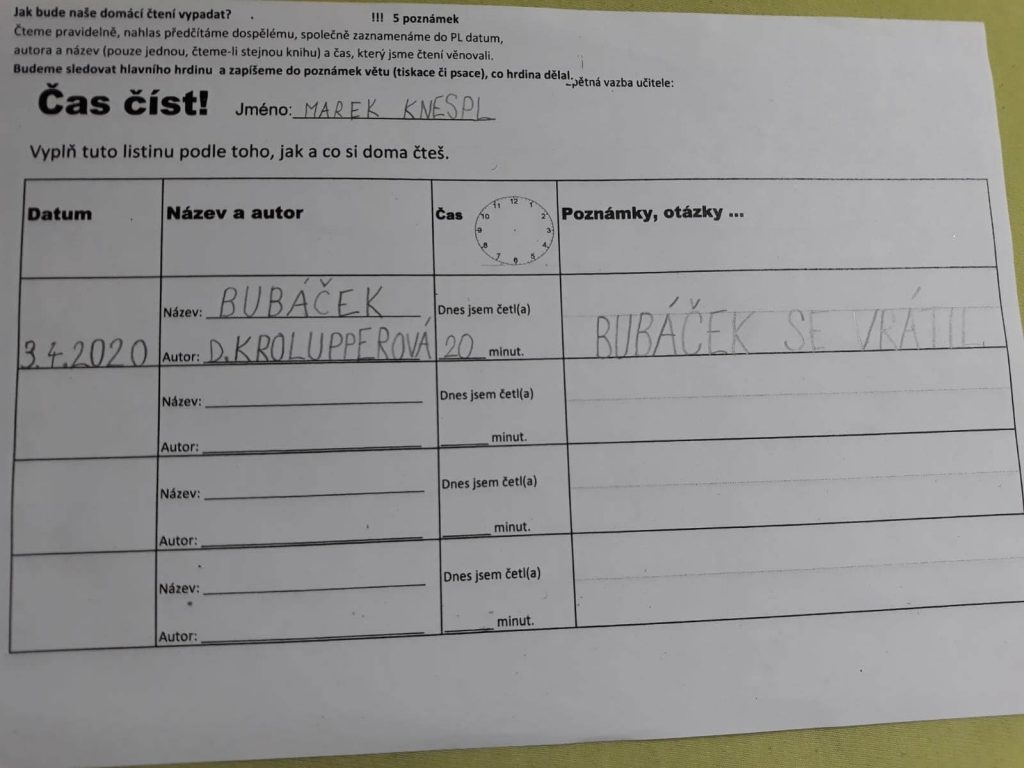 Jak bude naše domácí čtení vypadat? . !!! 5 poznámek
Čteme pravidelně, nahlas předčítáme dospělému, společně zaznamenáme do PL datum,
autora a název (pouze jednou, čteme-li stejnou knihu) a čas, který jsme čtení věnovali.
Budeme sledovat hlavního hrdinu a zapíšeme do poznámek větu (tiskace či psace), co hrdina dělal.
zpětná vazba učitele:
Čas číst! Jméno: MAREK KNESPL
Vyplň tuto listinu podle toho, jak a co si doma čteš.
Datum Název a autor Čas Poznámky, otázky ...
12 1 2 3 4 5 6 7 8 9 10 11
Název: BUBÁČEK Dnes jsem četl(a)
3.4.2020 Autor: D.KROLUPPEROVÁ 20 minut. BUBÁČEK SE VRÁTIL
Název: Dnes jsem četl(a)
Autor: minut.
Název: Dnes jsem četl(a)
Autor: minut.
Název: Dnes jsem četl(a)
Autor: minut.